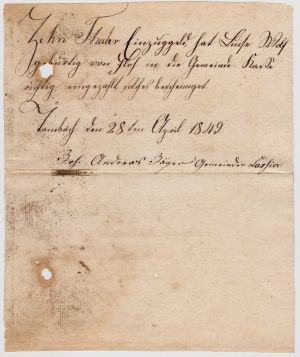 Zehn Thaler Einzuggeld, hat Luise Wolf
gebürtig von Hof in die Gemeinde
richtig eingezahlt solches bescheiniget
den 28 ten April 1849
Joh. Andreas Jäger Gemeinder Cassier